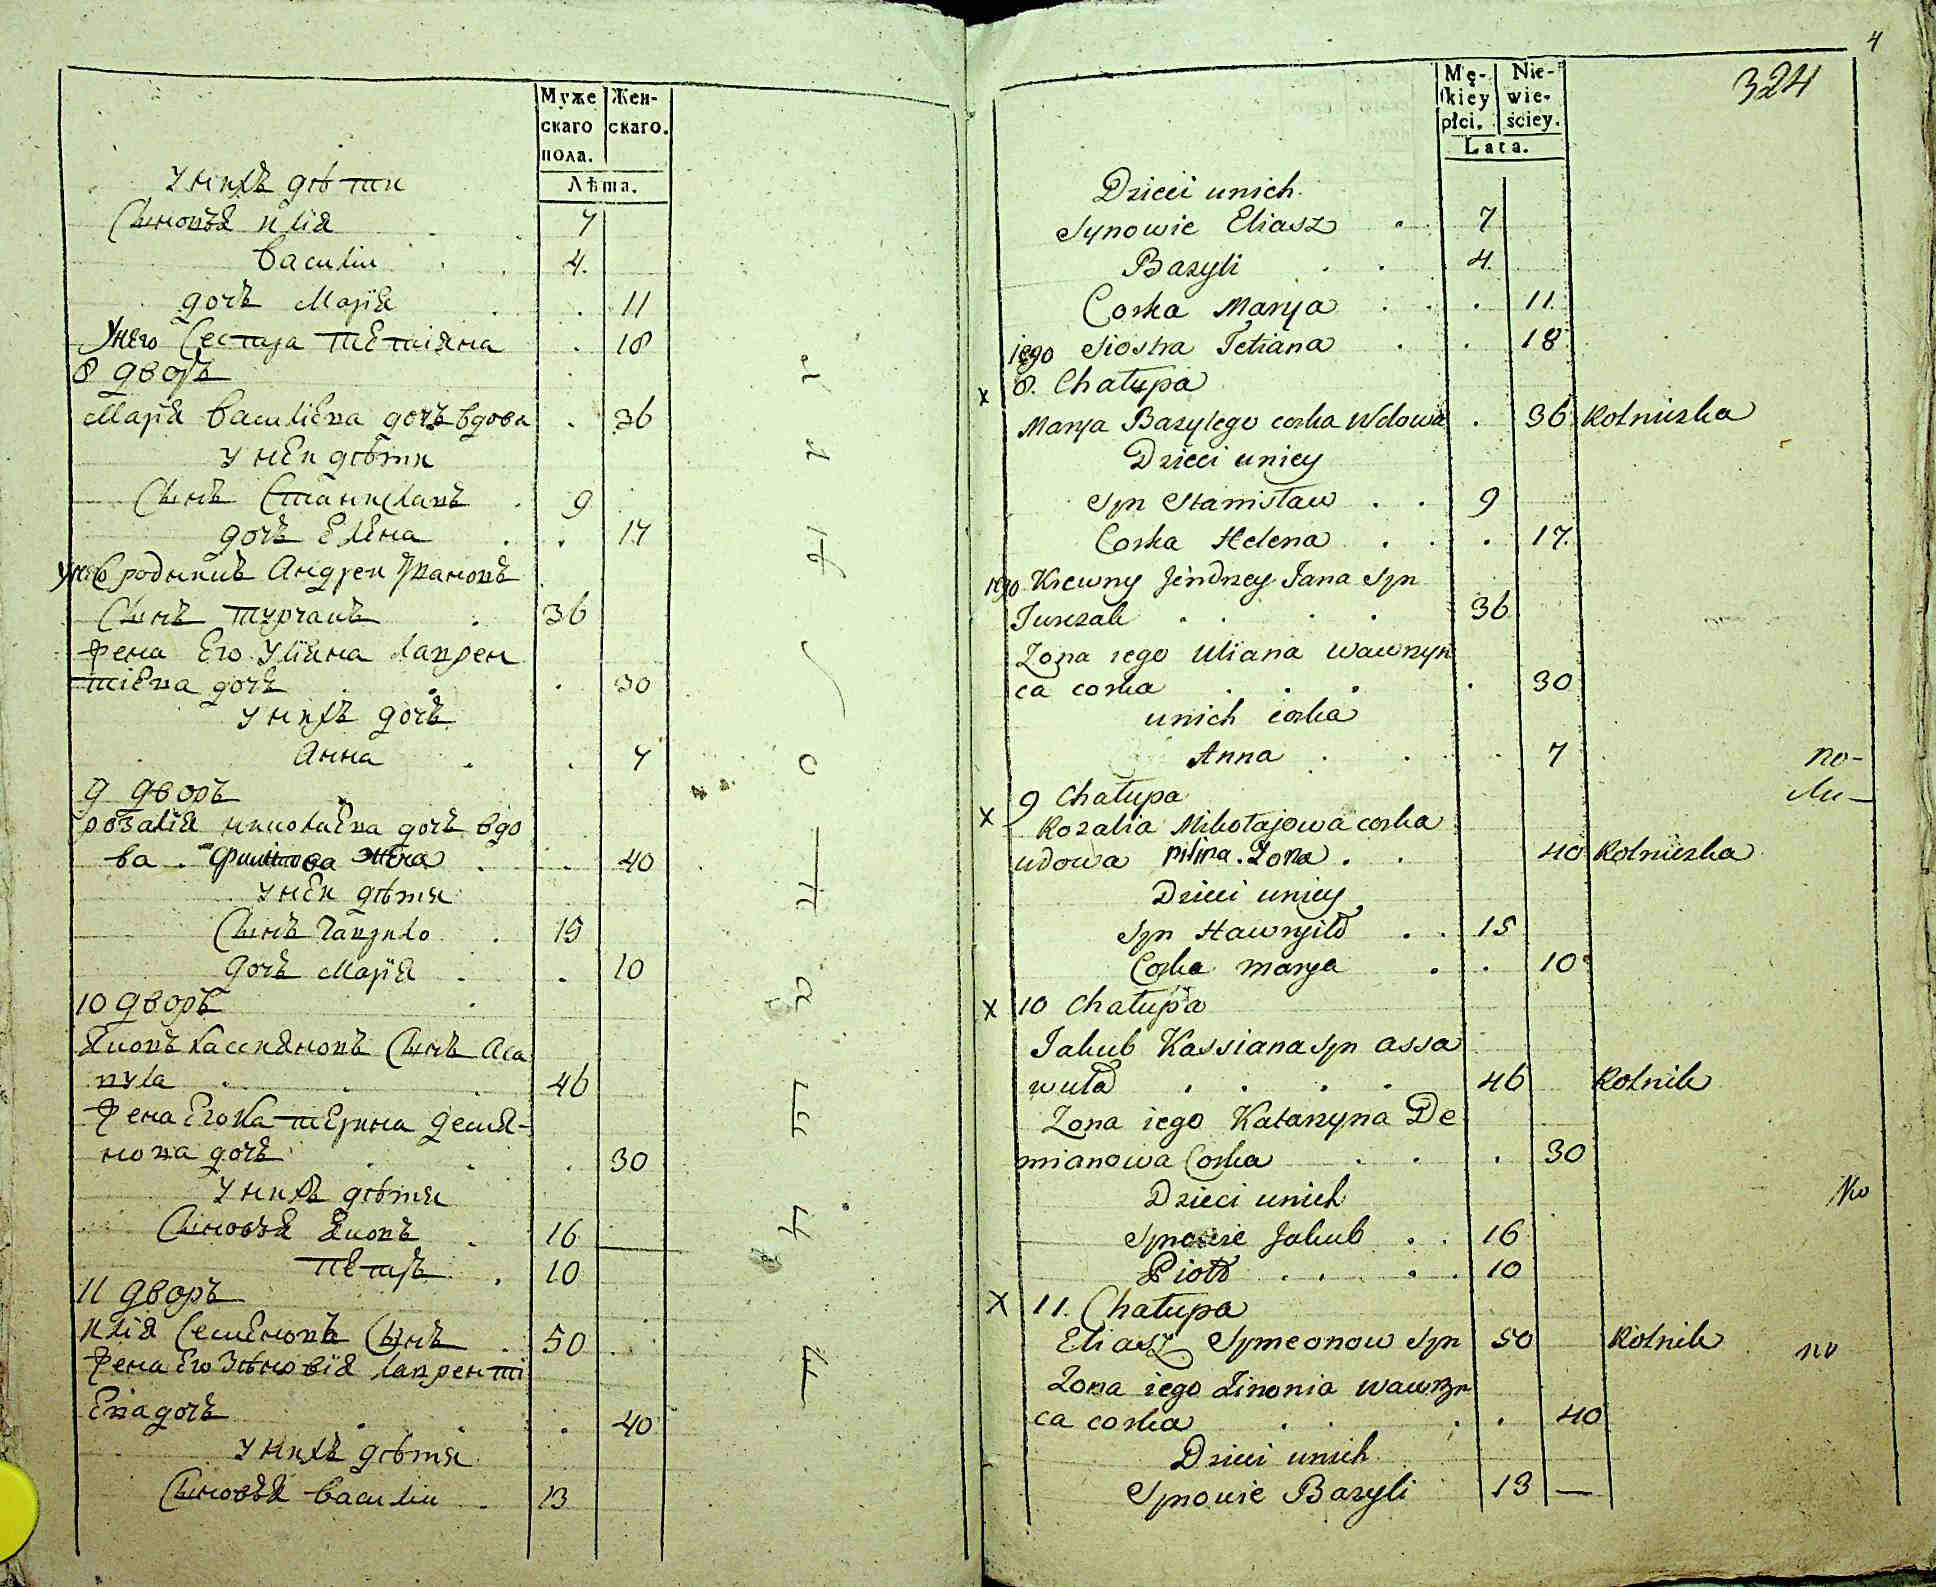 Муже
скаго
пола.
Жен-
скаго.
Лѣта.
У нихъ дѣти
Сыновья илія 7
василій 4.
дочъ Марія 11
У него Сестра тетіяна 18
8 дворъ
Марія василіева дочъ вдова 36
У неи дѣти
Сынъ Станиславъ 9
дочъ Елена 17
У него Сродникъ Андреи Ивановъ
Сынъ турчакъ 36
Жена Его Уліяна лаврен
тіева дочъ 30
У нихъ дочъ
Анна 7
9 дворъ
розалія николаева дочъ вдо
ва жена 40
У неи дѣти
Сынъ Гаврило 15
дочъ Марія 10
10 дворъ
Яковъ касияновъ Сынъ Аса
вула 46
Жена Его катерина демя-
нова дочъ 30
У нихъ дѣти
Сыновья Яковъ 16
петръ 10
11 дворъ
илія Семеновъ Сынъ 50
Жена Его Зѣновія лаврентi
Ева дочъ 40
У нихъ дѣти
Сыновья василіи 13
4
324
Mę-
skiey
płci.
Nie-
wie-
ściey.
Lata.
Dzieci unich
Synowie Eliasz 7
Bazyli 4.
Corka Marya 11
iego Siostra Tetiana 18
x 8. Chałupa
Marya Bazylego corka Wdowa 36 Rolniczka
Dzieci uniey
Syn Stanisław 9
Corka Helena 17.
iego Krewny Jendrzey Jana Syn
Turczak 36
Zona iego Uliana Wawrzyn
ca corka 30
unich corka
Anna 7
x 9 Chałupa
Rozalia Mikołajowa corka
wdowa Zona 40 Rolniczka
Dzieci uniey
Syn Hawryiło 15
Corka Marya 10
x 10 Chałupa
Jakub Kassiana Syn assa
wuła 46 Rolnik
Zona iego Katarzyna De
mianowa Corka 30
Dzieci unich
Synowie Jakub 16
Piotr 10
x 11. Chałupa
Eliasz Symeonow Syn 50 Rolnik
Zona iego Zinonia Wawrzyn
ca corka 40
Dzieci unich
Synowie Bazyli 13 —